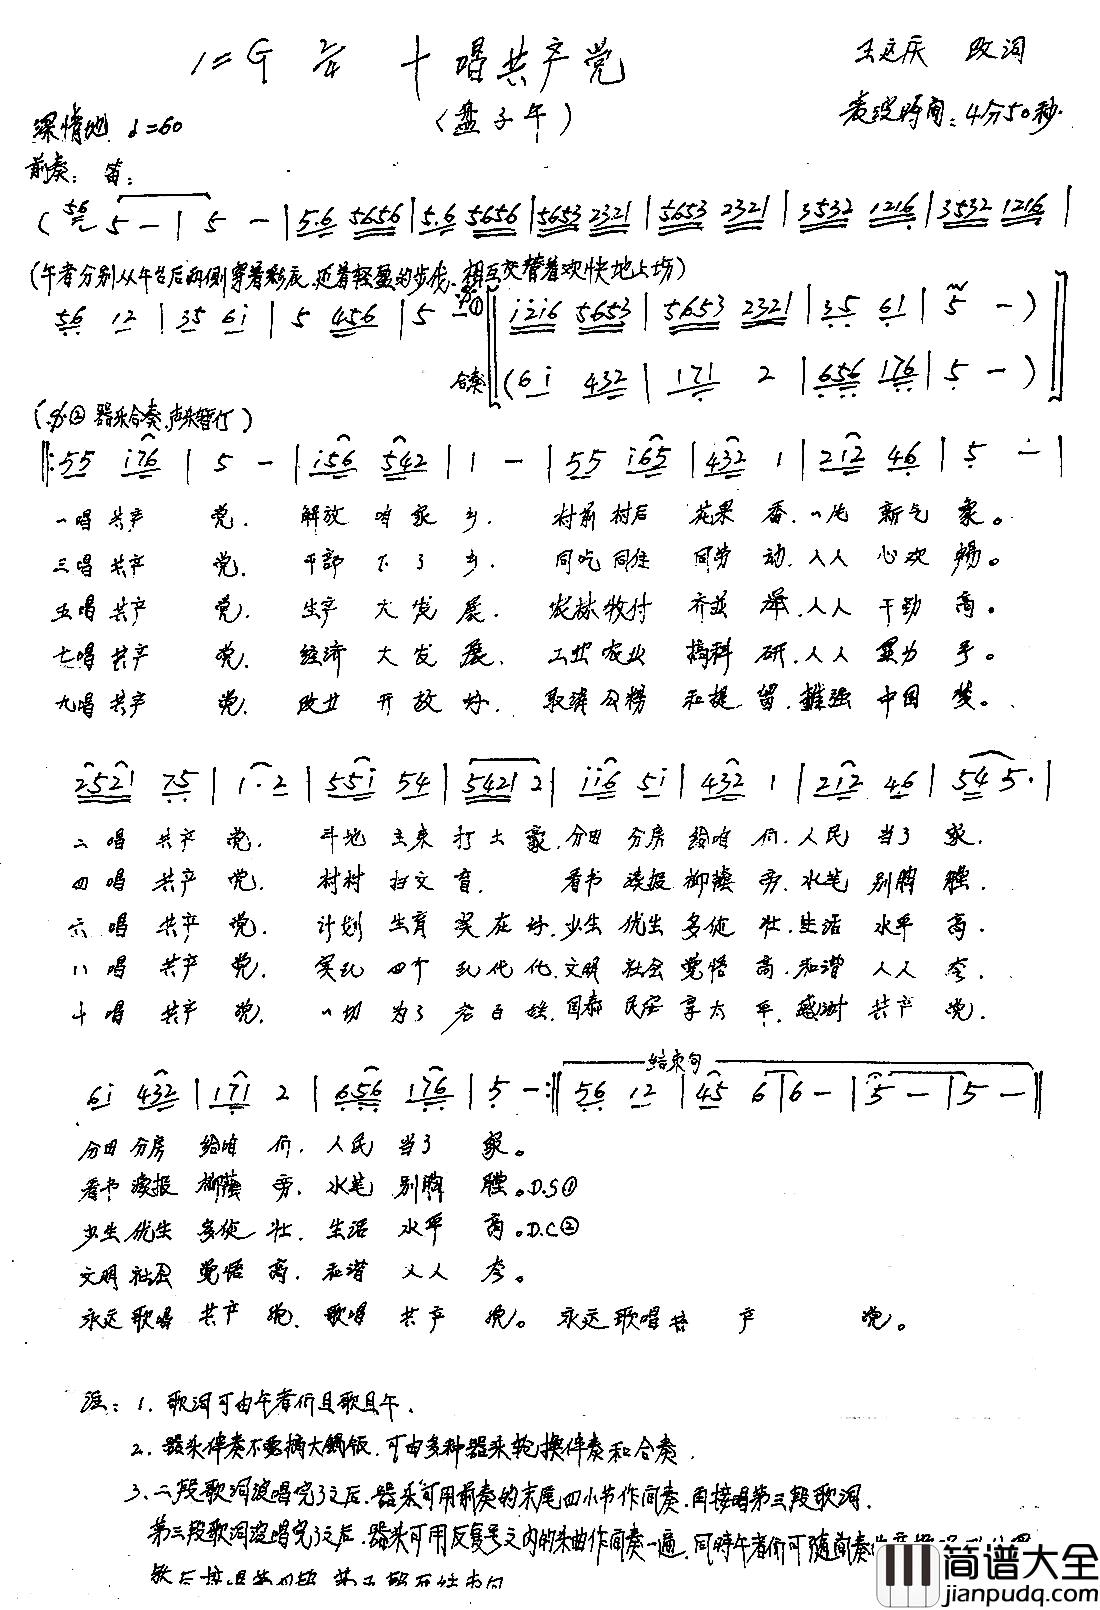 1=G 2/4 十唱共产党 王近庆 改词
(盘子午)
深情地 ♩=60 表演时间:4分50秒.
前奏: 笛:
(56 5 - | 5 - | 5.6 5656 | 5.6 5656 | 5653 2321 | 5653 2321 | 3532 1216 | 3532 1216 |
(午者分别从午台后两侧穿着彩衣.迈着轻盈的步伐.相互交替着欢快地上场)
56 12 | 35 6i | 5 456 | 5 ① i2i6 5653 | 5653 2321 | 35 61 | 5 - )
合奏 (6i 432 | 171 2 | 656 176 | 5 - )
② 器乐合奏,声乐暂行)
‖: 55 i76 | 5 - | i56 542 | 1 - | 55 i65 | 432 1 | 212 46 | 5 - |
一唱共产 党. 解放 咱家 乡. 村前村后 花果 香.一片 新气 象。
三唱共产 党. 干部 下了 乡. 同吃同住 同劳 动.人人 心欢 畅。
五唱共产 党. 生产 大发 展. 农林牧付 齐并 举.人人 干劲 高。
七唱共产 党. 经济 大发 展. 工业农业 搞科 研.人人 显力 手。
九唱共产 党. 改革 开放 好. 取消公粮 和提 留. 中国 梦。
2521 75 | 1. 2 | 55i 54 | 5421 2 | ii6 5i | 432 1 | 212 46 | 54 5. |
二唱 共产 党. 斗地 主来 打土 豪.分田 分房 给咱 们.人民 当了 家.
四唱 共产 党. 村村 扫文 盲. 看书 读报 柳荫 旁.水笔 别胸 膛.
六唱 共产 党. 计划 生育 实在 好.少生 优生 多健 壮.生活 水平 高.
八唱 共产 党. 实现 四个 现代 化.文明 社会 觉悟 高.和谐 人人 夸.
十唱 共产 党. 一切 为了 老百 姓.国泰 民安 享太 平.感谢 共产 党.
结束句
6i 432 | 171 2 | 656 176 | 5 - :‖ 56 12 | 45 6 | 6 - | 5 - | 5 - ‖
分田分房 给咱 们.人民 当了 家。
看书读报 柳荫 旁.水笔 别胸 膛。D.S①
少生优生 多健 壮.生活 水平 高。D.C②
文明社会 觉悟 高.和谐 人人 夸。
永远歌唱 共产 党.歌唱 共产 党。 永远歌唱共 产 党。
注: 1. 歌词可由午者们且歌且午.
2. 器乐伴奏不要搞大锅饭.可由多种器乐轮换伴奏和合奏.
3. 二段歌词演唱完了之后.器乐可用前奏的末尾四小节作间奏.再接唱第三段歌词.
第三段歌词演唱完了之后.器乐可用反复号之内的乐曲作间奏一遍.同时午者们可随间奏
简谱大全
jianpudq.com